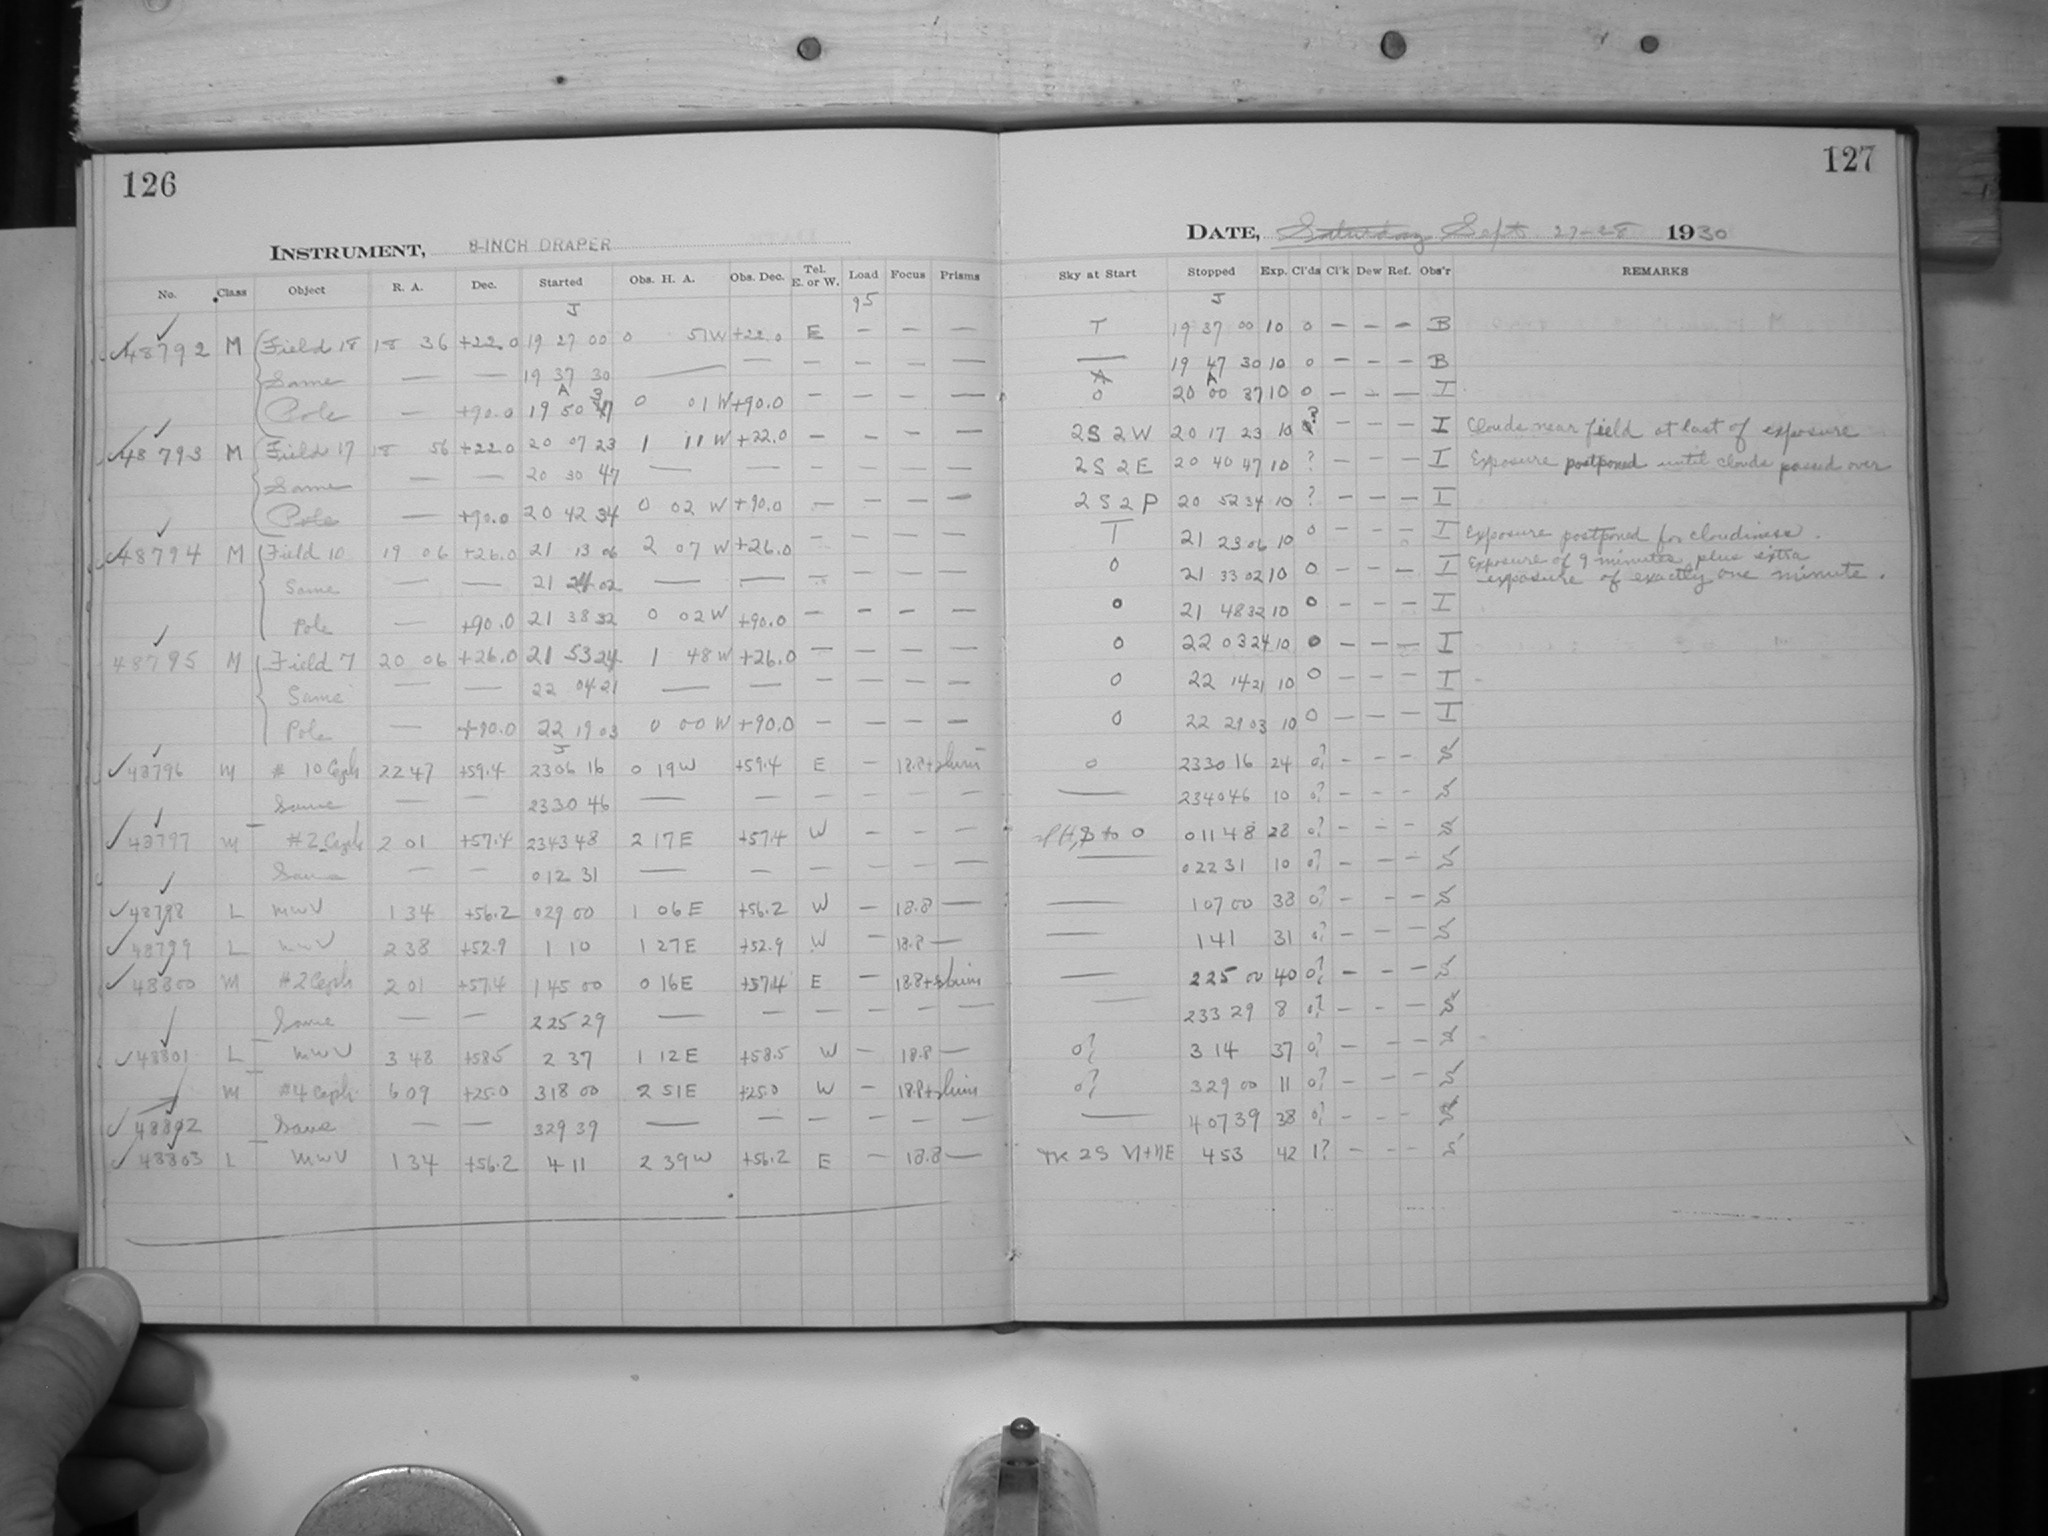 126
127
INSTRUMENT, 8-INCH DRAPER
DATE, Saturday Sept. 27-28 1930
No. Class Object R. A. Dec. Started Obs. H. A. Obs. Dec. Tel. E. or W. Load Focus Prisms Sky at Start Stopped Exp. Cl'ds Cl'k Dew Ref. Obs'r REMARKS
J 95 J
48792 M Field 18 18 36 +22.0 19 27 00 0 51 W +22.0 E — — — T 19 37 00 10 0 — — — B
Same — — 19 37 30 — — — — — — — 19 47 30 10 0 — — — B
A A
Pole — +90.0 19 50 37 0 01 W +90.0 — — — — 0 20 00 37 10 0 — — — I
48793 M Field 17 18 56 +22.0 20 07 23 1 11 W +22.0 — — — — 2S 2W 20 17 23 10 ? — — — I Clouds near field at last of exposure
Same — — 20 30 47 — — — — — — 2S 2E 20 40 47 10 ? — — — I Exposure postponed until clouds passed over
Pole — +90.0 20 42 34 0 02 W +90.0 — — — — 2S2P 20 52 34 10 ? — — — I
48794 M Field 10 19 06 +26.0 21 13 06 2 07 W +26.0 — — — — T 21 23 06 10 0 — — — I Exposure postponed for cloudiness.
Same — — 21 24 02 — — — — — — 0 21 33 02 10 0 — — — I Exposure of 9 minutes plus extra
exposure of exactly one minute.
Pole — +90.0 21 38 32 0 02 W +90.0 — — — — 0 21 48 32 10 0 — — — I
48795 M Field 7 20 06 +26.0 21 53 24 1 48 W +26.0 — — — — 0 22 03 24 10 0 — — — I
Same — — 22 04 21 — — — — — — 0 22 14 21 10 0 — — — I
Pole — +90.0 22 19 03 0 00 W +90.0 — — — — 0 22 29 03 10 0 — — — I
J
48796 M # 10 Ceph 22 47 +59.4 23 06 16 0 19 W +59.4 E — 18.8 + 0 23 30 16 24 0? — — — S
Same — — 23 30 46 — — — — — — — 23 40 46 10 0? — — — S
48797 M #2 Ceph 2 01 +57.4 23 43 48 2 17 E +57.4 W — — — to 0 0 11 48 28 0? — — — S
Same — — 0 12 31 — — — — — — — 0 22 31 10 0? — — — S
48798 L MWV 1 34 +56.2 0 29 00 1 06 E +56.2 W — 18.8 — — 1 07 00 38 0? — — — S
48799 L MWV 2 38 +52.9 1 10 1 27 E +52.9 W — 18.8 — — 1 41 31 0? — — — S
48800 M #2 Ceph 2 01 +57.4 1 45 00 0 16 E +57.4 E — 18.8 + — 2 25 00 40 0? — — — S
Same — — 2 25 29 — — — — — — — 2 33 29 8 0? — — — S
48801 L MWV 3 48 +58.5 2 37 1 12 E +58.5 W — 18.8 — 0? 3 14 37 0? — — — S
M #4 Ceph 6 09 +25.0 3 18 00 2 51 E +25.0 W — 18.8 + 0? 3 29 00 11 0? — — — S
48802 Same — — 3 29 39 — — — — — — — 4 07 39 38 0? — — — S
48803 L MWV 1 34 +56.2 4 11 2 39 W +56.2 E — 18.8 — 2S N+NE 4 53 42 1? — — — S